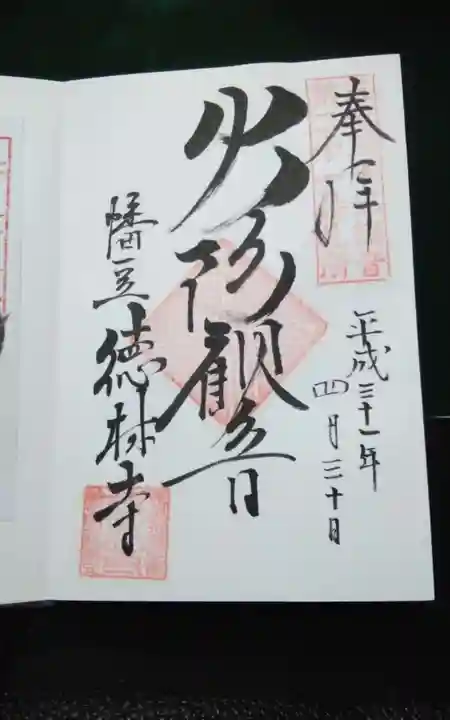 奉拝
平成三十一年
四月三十日
火防観音
幡豆 徳林寺